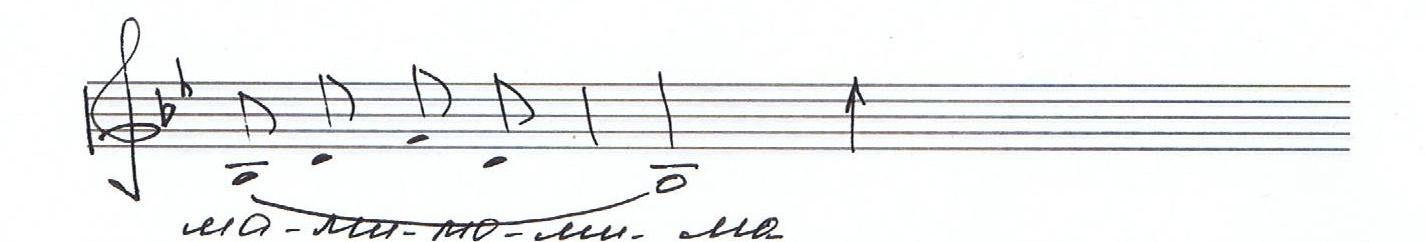 ма-ми-мо-ми-ма